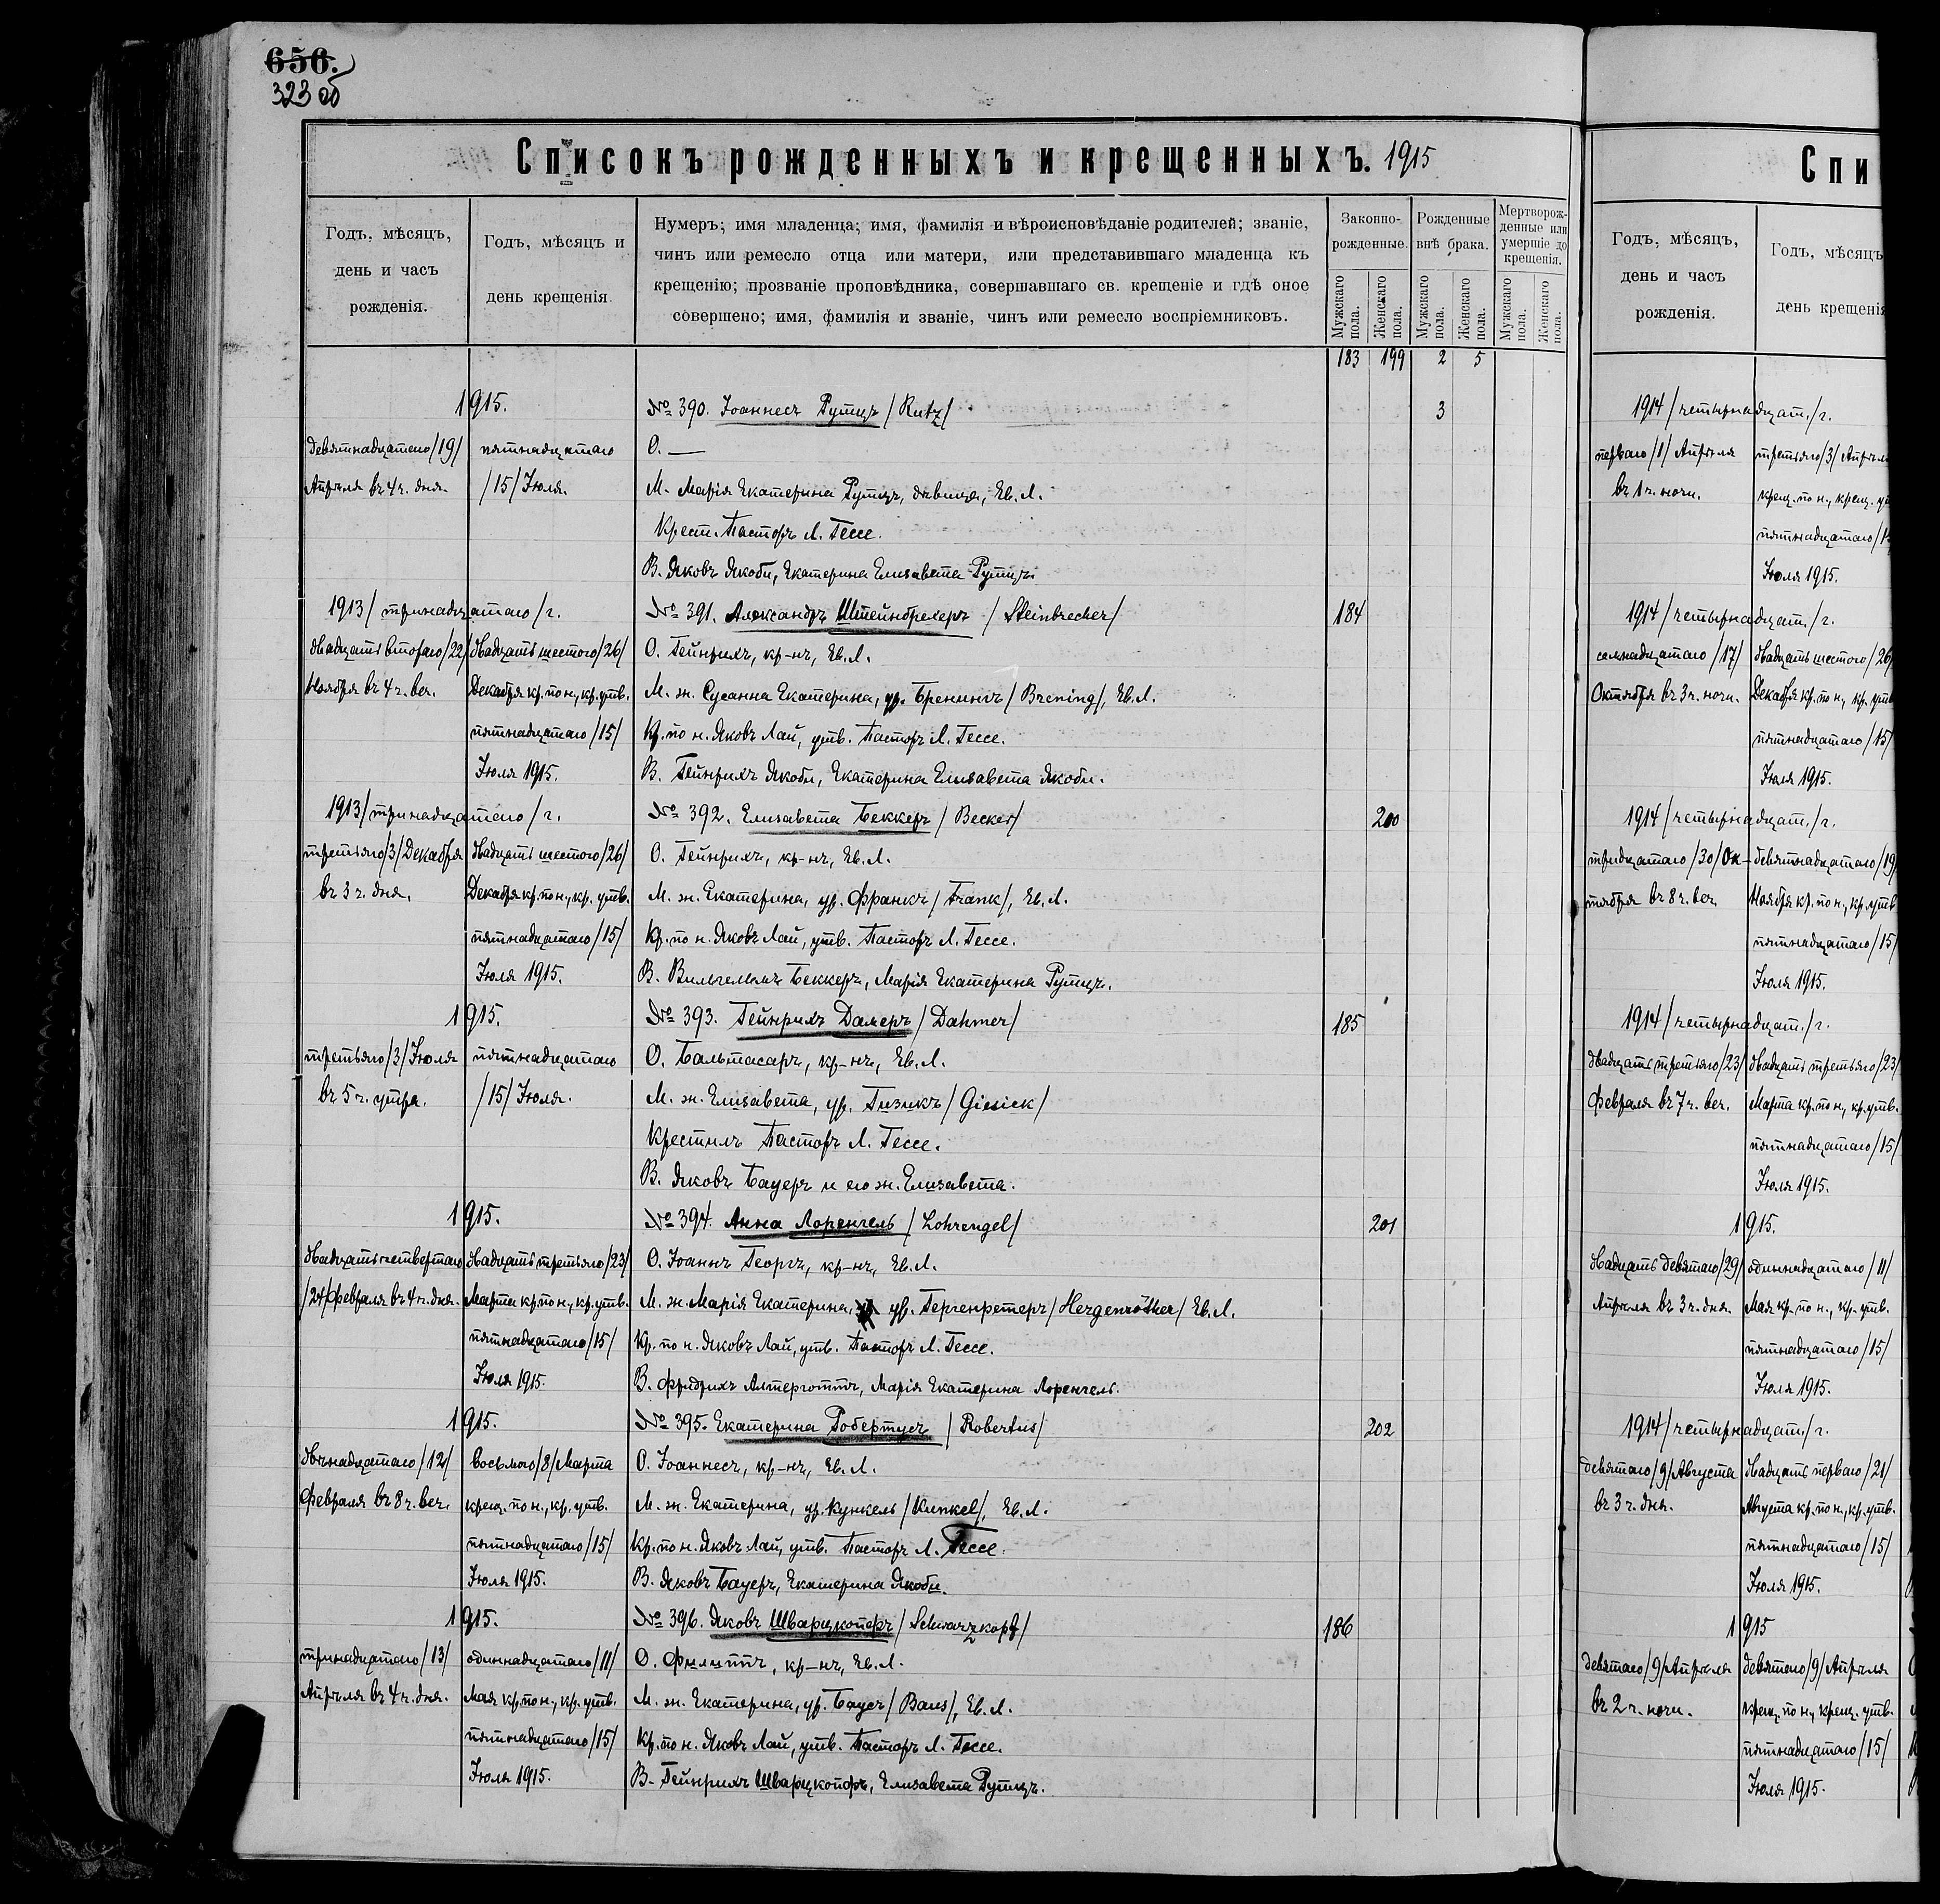 656.
323 об
Списокъ рожденныхъ и крещенныхъ. 1915
Годъ, мѣсяцъ,
день и часъ
рожденія.
Годъ, мѣсяцъ и
день крещенія.
Нумеръ; имя младенца; имя, фамилія и вѣроисповѣданіе родителей; званіе,
чинъ или ремесло отца или матери, или представившаго младенца къ
крещенію; прозваніе проповѣдника, совершавшаго св. крещеніе и гдѣ оное
совершено; имя, фамилія и званіе, чинъ или ремесло воспріемниковъ.
Законно-
рожденные.
Рожденные
внѣ брака.
Мертворож-
денные или
умершіе до
крещенія.
Мужскаго пола.
Женскаго пола.
Мужскаго пола.
Женскаго пола.
Мужскаго пола.
Женскаго пола.
183 199 2 5
1915.
девятнадцатаго /19/
Апрѣля въ 4 ч. дня.
пятнадцатаго
/15/ Іюля.
№ 390. Іоаннесъ Рутцъ /Rutz/
3
О. —
М. Марія Екатерина Рутцъ, дѣвица, Ев. Л.
Крест. Пасторъ Л. Гессе.
В. Яковъ Якоби, Екатерина Елизавета Рутцъ.
1913 /тринадцатаго/ г.
двадцать втораго /22/
Ноября въ 4 ч. веч.
двадцать шестого /26/
Декабря кр. по н., кр. утв.
пятнадцатаго /15/
Іюля 1915.
№ 391. Александръ Штейнбрехеръ /Steinbrecher/
184
О. Гейнрихъ, кр-нъ, Ев. Л.
М. ж. Сусанна Екатерина, ур. Бренингъ /Brening/, Ев. Л.
Кр. по н. Яковъ Лай, утв. Пасторъ Л. Гессе.
В. Гейнрихъ Якоби, Екатерина Елизавета Якоби.
1913 /тринадцатаго/ г.
третьяго /3/ Декабря
въ 3 ч. дня.
двадцать шестого /26/
Декабря кр. по н., кр. утв.
пятнадцатаго /15/
Іюля 1915.
№ 392. Елизавета Беккеръ /Becker/
200
О. Гейнрихъ, кр-нъ, Ев. Л.
М. ж. Екатерина, ур. Франкъ /Frank/, Ев. Л.
Кр. по н. Яковъ Лай, утв. Пасторъ Л. Гессе.
В. Вильгельмъ Беккеръ, Марія Екатерина Рутцъ.
1915.
третьяго /3/ Іюля
въ 5 ч. утра.
пятнадцатаго
/15/ Іюля.
№ 393. Гейнрихъ Дамеръ /Dahmer/
185
О. Бальтасаръ, кр-нъ, Ев. Л.
М. ж. Елизавета, ур. Гизикъ /Giesick/
Крестилъ Пасторъ Л. Гессе.
В. Яковъ Бауеръ и его ж. Елизавета.
1915.
двадцать четвертаго
/24/ Февраля въ 4 ч. дня.
двадцать третьяго /23/
Марта кр. по н., кр. утв.
пятнадцатаго /15/
Іюля 1915.
№ 394. Анна Лоренгель /Lohrengel/
201
О. Іоаннъ Георгъ, кр-нъ, Ев. Л.
М. ж. Марія Екатерина, ур. Гергенретеръ /Hergenröther/ Ев. Л.
Кр. по н. Яковъ Лай, утв. Пасторъ Л. Гессе.
В. Фридрихъ Алтерготтъ, Марія Екатерина Лоренгель.
1915.
двѣнадцатаго /12/
Февраля въ 8 ч. веч.
восьмого /8/ Марта
крещ. по н., кр. утв.
пятнадцатаго /15/
Іюля 1915.
№ 395. Екатерина Робертусъ /Robertus/
202
О. Іоаннесъ, кр-нъ, Ев. Л.
М. ж. Екатерина, ур. Кункель /Kunkel/, Ев. Л.
Кр. по н. Яковъ Лай, утв. Пасторъ Л. Гессе.
В. Яковъ Бауеръ, Екатерина Якоби.
1915.
тринадцатаго /13/
Апрѣля въ 4 ч. дня.
одиннадцатаго /11/
Мая кр. по н., кр. утв.
пятнадцатаго /15/
Іюля 1915.
№ 396. Яковъ Шварцкопфъ /Schwarzkopf/
186
О. Филиппъ, кр-нъ, Ев. Л.
М. ж. Екатерина, ур. Баусъ /Baus/, Ев. Л.
Кр. по н. Яковъ Лай, утв. Пасторъ Л. Гессе.
В. Гейнрихъ Шварцкопфъ, Елизавета Рутцъ.
Спи
Годъ, мѣсяцъ,
день и часъ
рожденія.
Годъ, мѣсяцъ
день крещенія
1914 /четырнадцат./ г.
перваго /1/ Апрѣля
въ 1 ч. ночи.
третьяго /3/ Апрѣля
крещ. по н., крещ. ут
пятнадцатаго /1
Іюля 1915.
1914 /четырнадцат./ г.
семнадцатаго /17/
Октября въ 3 ч. ночи.
двадцать шестого /26/
Декабря кр. по н., кр. утв
пятнадцатаго /15/
Іюля 1915.
1914 /четырнадцат./ г.
тридцатаго /30/ Ок-
тября въ 8 ч. веч.
девятнадцатаго /19/
Ноября кр. по н., кр. утв
пятнадцатаго /15/
Іюля 1915.
1914 /четырнадцат./ г.
двадцать третьяго /23/
Февраля въ 7 ч. веч.
двадцать третьяго /23/
Марта кр. по н., кр. утв.
пятнадцатаго /15/
Іюля 1915.
1915.
двадцать девятаго /29/
Апрѣля въ 3 ч. дня.
одиннадцатаго /11/
Мая кр. по н., кр. утв.
пятнадцатаго /15/
Іюля 1915.
1914 /четырнадцат./ г.
девятаго /9/ Августа
въ 3 ч. дня.
двадцать перваго /21/
Августа кр. по н., кр. утв.
пятнадцатаго /15/
Іюля 1915.
1915
девятаго /9/ Апрѣля
въ 2 ч. ночи.
девятаго /9/ Апрѣля
крещ. по н., крещ. утв.
пятнадцатаго /15/
Іюля 1915.